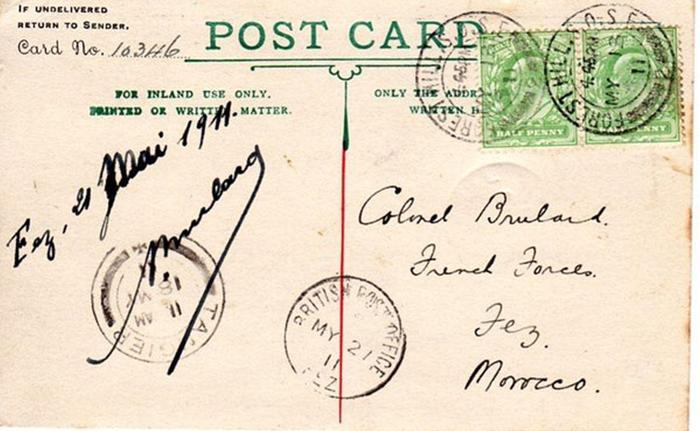 IF UNDELIVERED
RETURN TO SENDER.
Card No. 10346
POST CARD
FOR INLAND USE ONLY.
PRINTED OR WRITTEN MATTER.
ONLY THE ADDR
WRITTEN H
FOREST HILL S.O-S.E
MY
11
FOREST HILL S.O-S.E
MY
11
HALF PENNY
HALF PENNY
Fez, 21 Mai 1911.
Brulard
TANGIER
AM
18
11
BRITISH POST OFFICE
MY 21
11
FEZ
Colonel Brulard.
French Forces.
Fez.
Morocco.